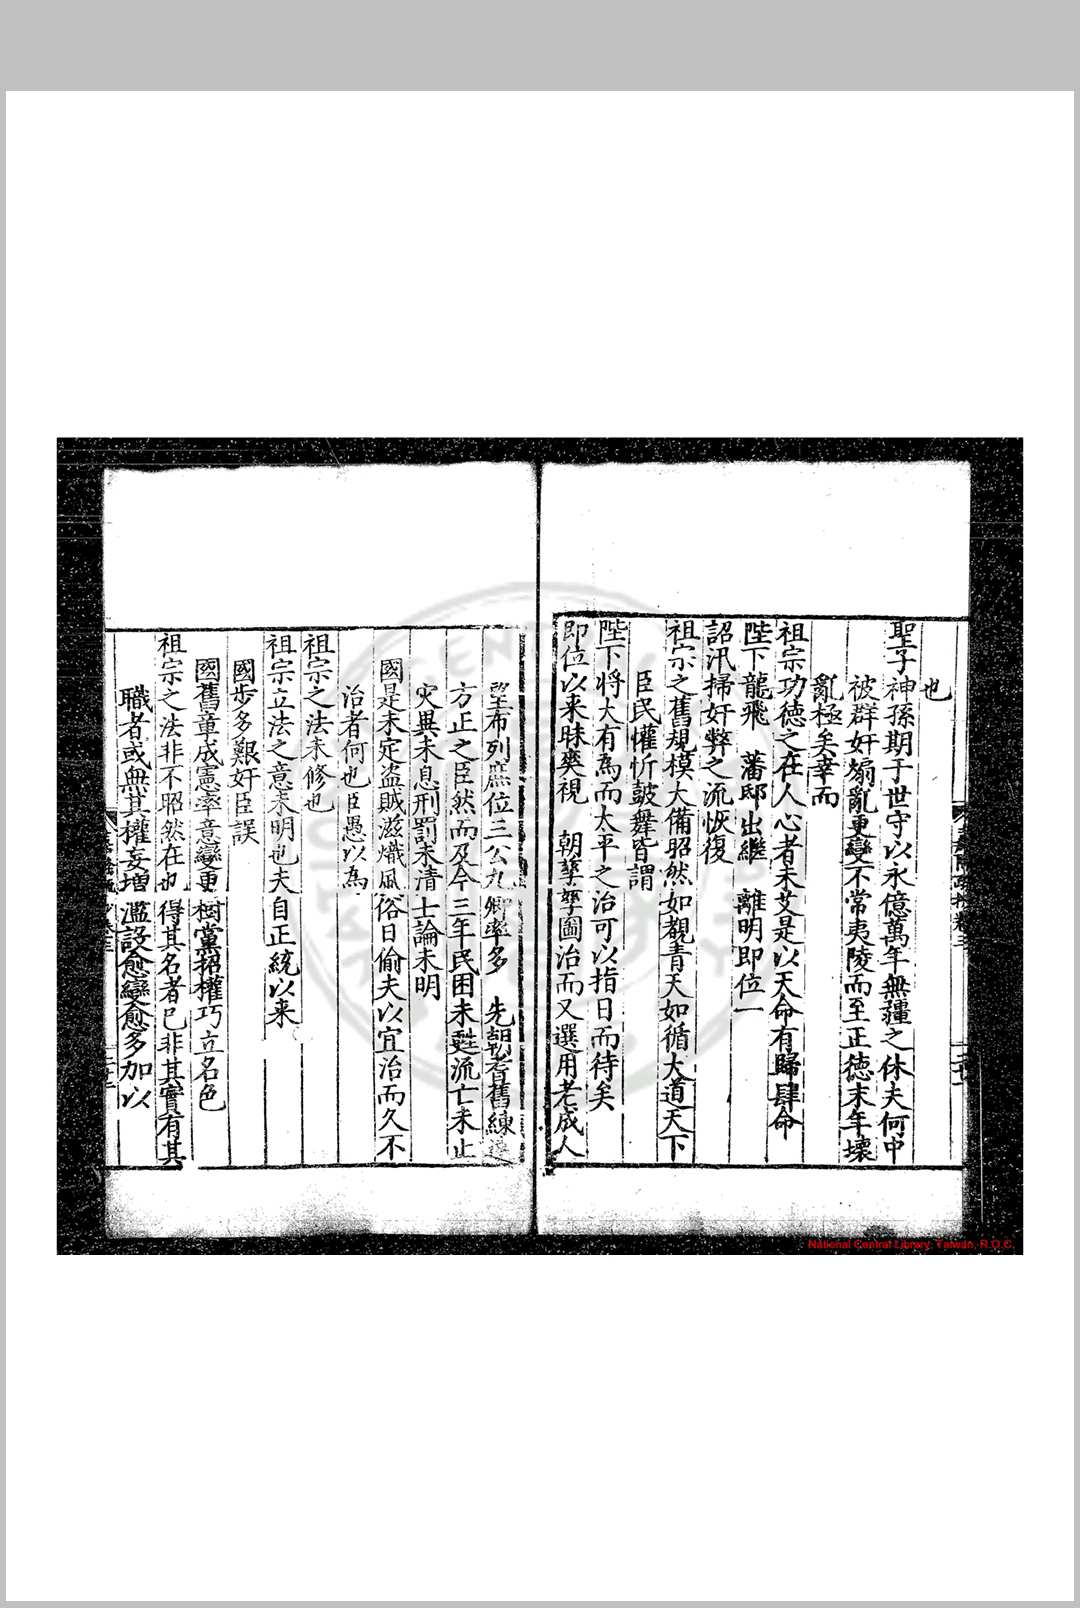 也
聖子神孫期于世守以永億萬年無疆之休夫何中
被群奸煽亂更變不常夷陵而至正德末年壞
亂極矣幸而
祖宗功德之在人心者未艾是以天命有歸肆命
陛下龍飛 藩邸出繼 離明即位一
詔汛掃奸弊之流恢復
祖宗之舊規模大備昭然如覩青天如循大道天下
臣民懽忻鼓舞皆謂
陛下將大有為而太平之治可以指日而待矣
即位以来昧爽視 朝孳孳圖治而又選用老成人
望布列庶位三公九卿率多 先朝耆舊練達
方正之臣然而及今三年民困未甦流亡未止
灾異未息刑罰未清士論未明
國是未定盗賊滋熾風俗日偷夫以宜治而久不
治者何也臣愚以為
祖宗之法未修也
祖宗立法之意未明也夫自正統以来
國步多艱奸臣誤
國舊章成憲率意變更樹黨招權巧立名色
祖宗之法非不昭然在也得其名者已非其實有其
職者或無其權妄增濫設愈變愈多加以
National Central Library, Taiwan, R.O.C.